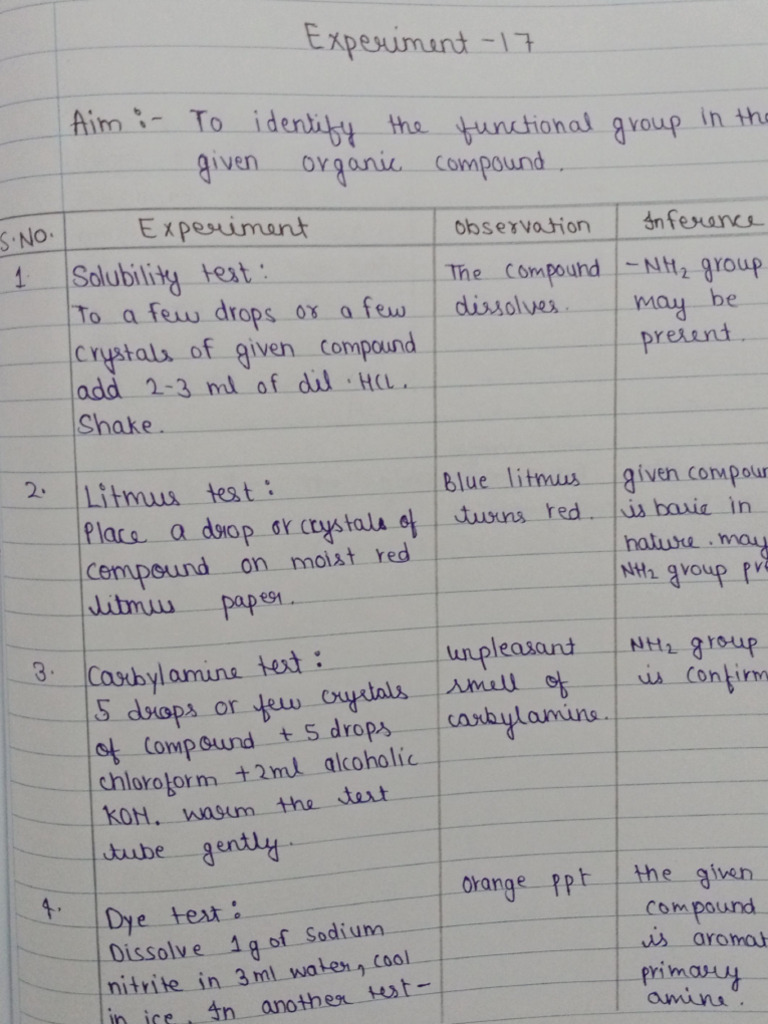 Experiment - 17
Aim :- To identify the functional group in the
given organic compound.
S.NO. Experiment Observation Inference
1. Solubility test :
To a few drops or a few
crystals of given compound
add 2-3 ml of dil. HCL.
Shake.
The compound
dissolves.
-NH2 group
may be
present.
2. Litmus test :
Place a drop or crystals of
compound on moist red
litmus paper.
Blue litmus
turns red.
given compoun
is basic in
nature. may
NH2 group pre
3. Carbylamine test :
5 drops or few crystals
of compound + 5 drops
chloroform + 2ml alcoholic
KOH. warm the test
tube gently.
unpleasant
smell of
carbylamine.
NH2 group
is confirm
4. Dye test :
Dissolve 1g of sodium
nitrite in 3ml water, cool
in ice. In another test-
orange ppt
the given
compound
is aromat
primary
amine.